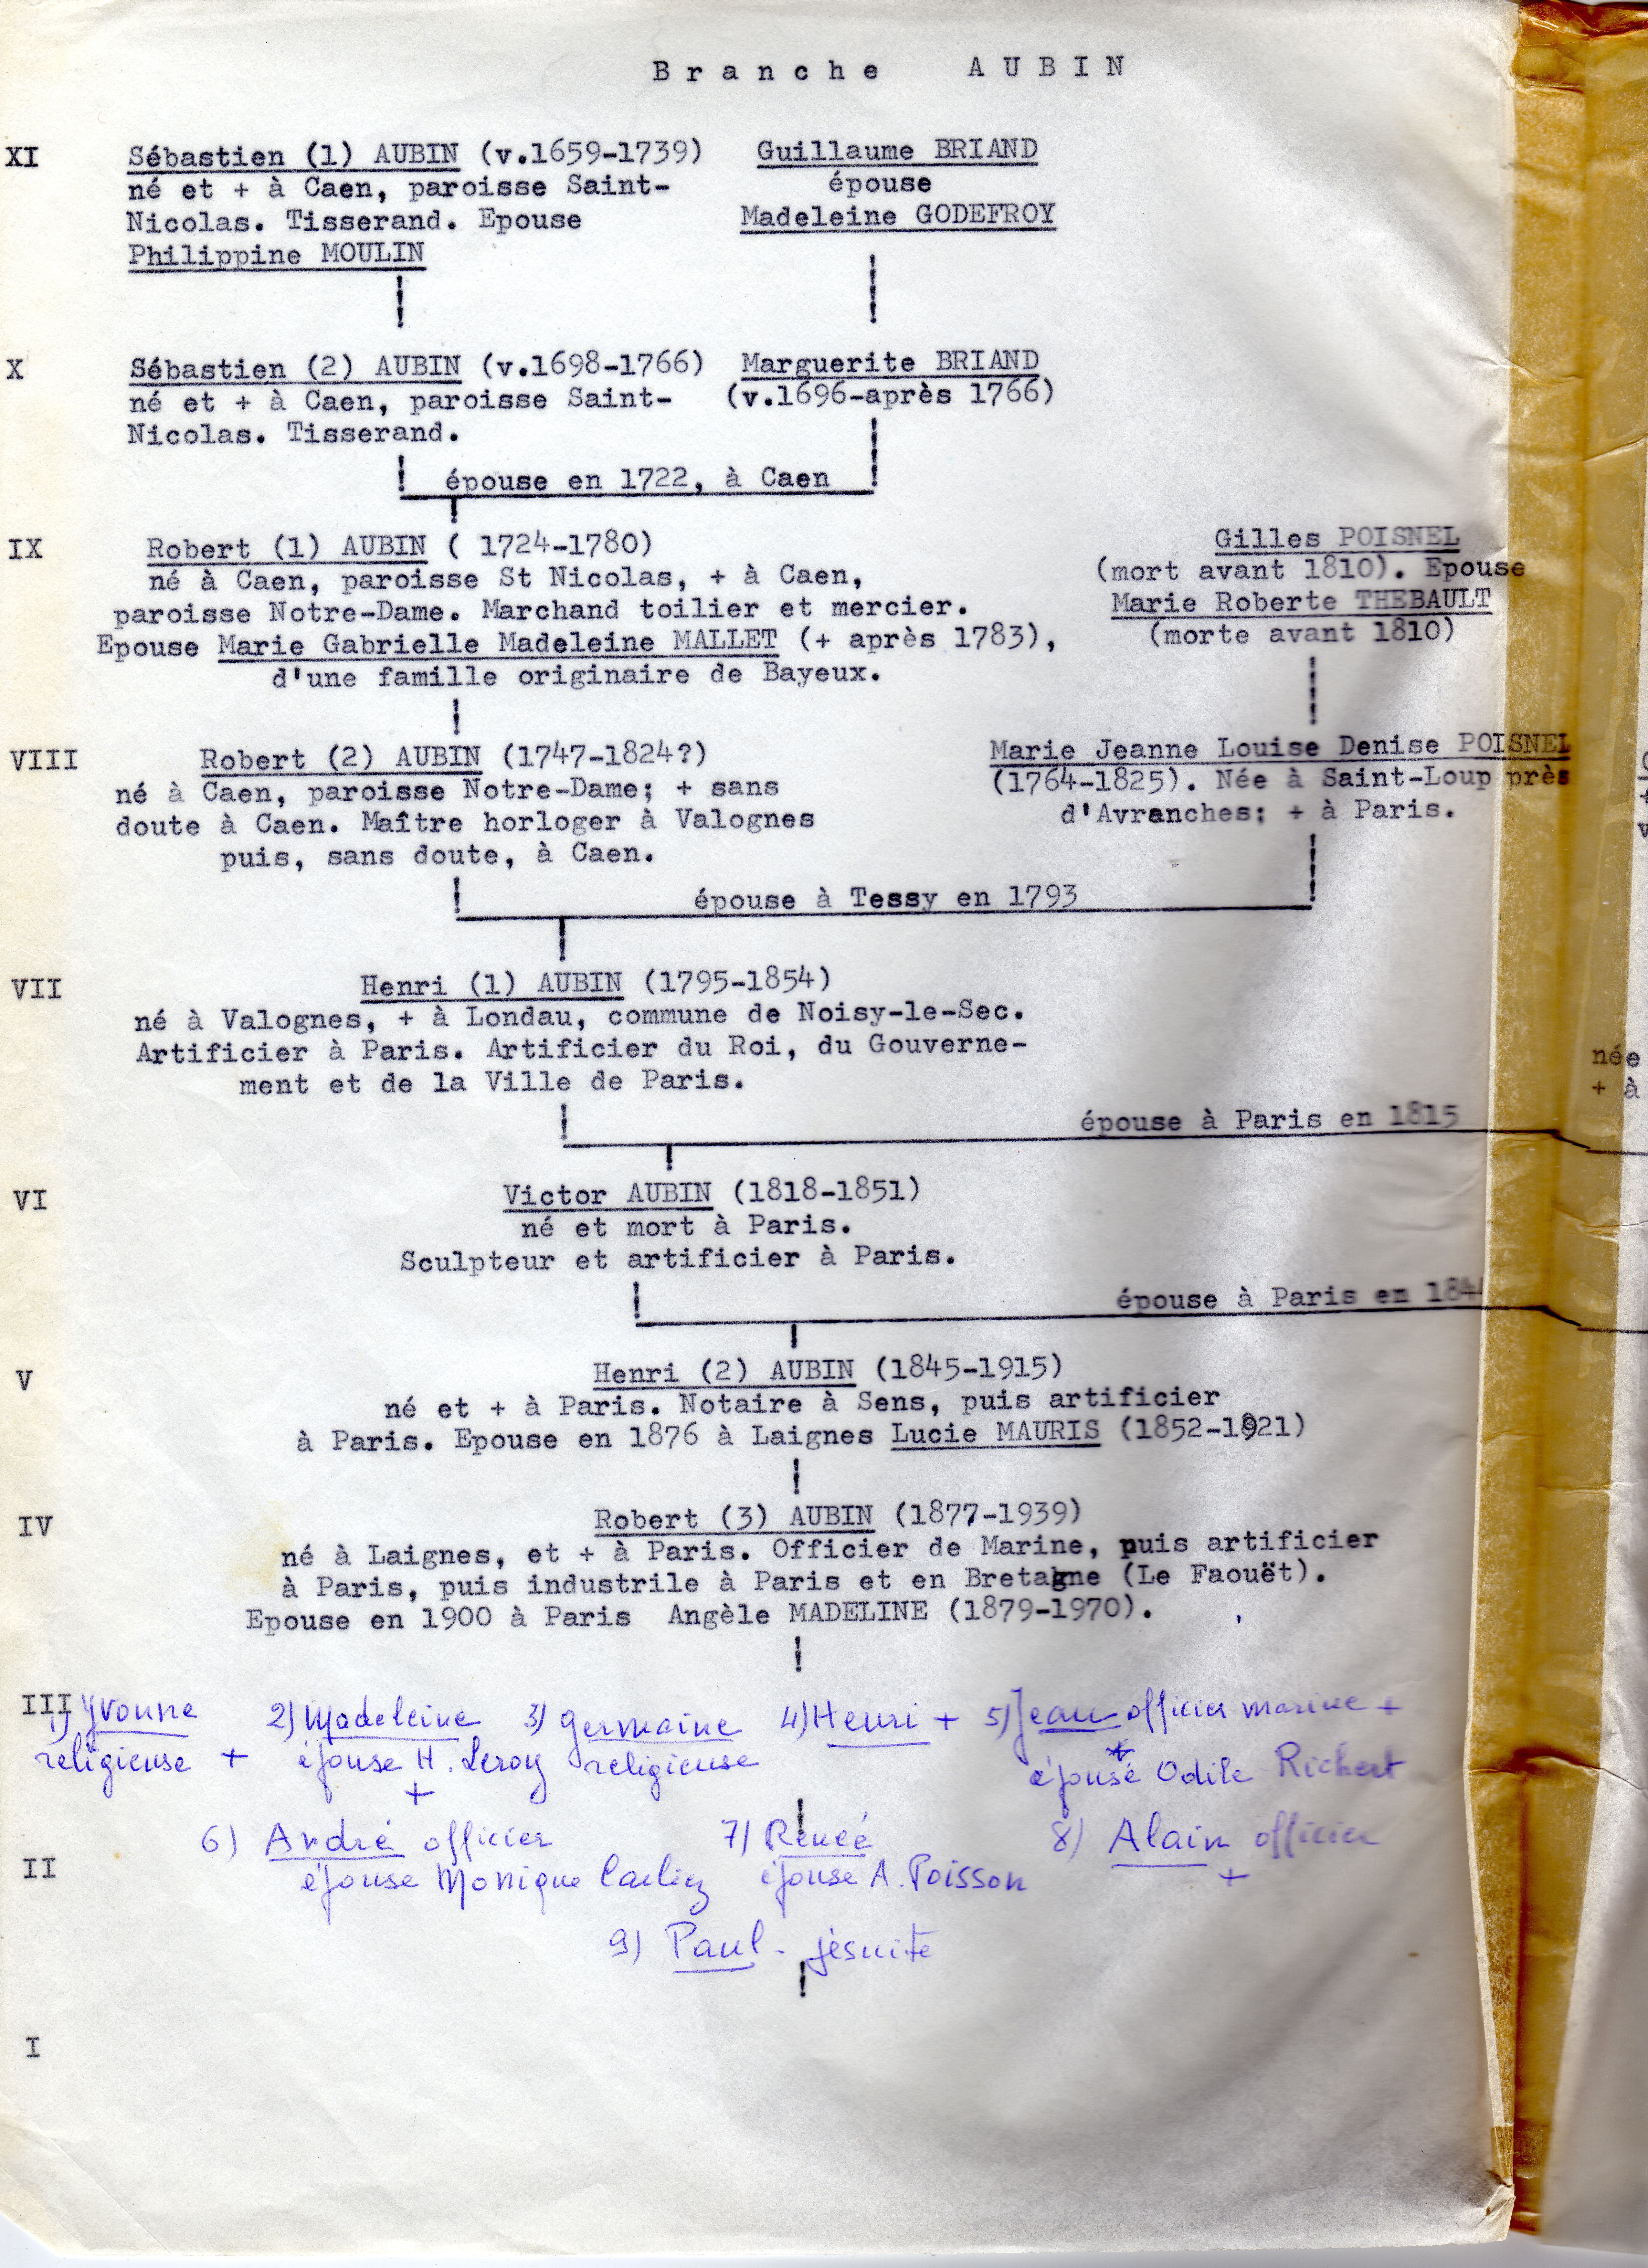 Branche AUBIN
XI
Sébastien (1) AUBIN (v.1659-1739)
né et + à Caen, paroisse Saint-
Nicolas. Tisserand. Epouse
Philippine MOULIN
Guillaume BRIAND
épouse
Madeleine GODEFROY
X
Sébastien (2) AUBIN (v.1698-1766)
né et + à Caen, paroisse Saint-
Nicolas. Tisserand.
Marguerite BRIAND
(v.1696-après 1766)
épouse en 1722, à Caen
IX
Robert (1) AUBIN ( 1724-1780)
né à Caen, paroisse St Nicolas, + à Caen,
paroisse Notre-Dame. Marchand toilier et mercier.
Epouse Marie Gabrielle Madeleine MALLET (+ après 1783),
d'une famille originaire de Bayeux.
Gilles POISNEL
(mort avant 1810). Epouse
Marie Roberte THEBAULT
(morte avant 1810)
VIII
Robert (2) AUBIN (1747-1824?)
né à Caen, paroisse Notre-Dame; + sans
doute à Caen. Maître horloger à Valognes
puis, sans doute, à Caen.
Marie Jeanne Louise Denise POISNEL
(1764-1825). Née à Saint-Loup près
d'Avranches; + à Paris.
épouse à Tessy en 1793
VII
Henri (1) AUBIN (1795-1854)
né à Valognes, + à Londau, commune de Noisy-le-Sec.
Artificier à Paris. Artificier du Roi, du Gouverne-
ment et de la Ville de Paris.
née
+ à
épouse à Paris en 1815
VI
Victor AUBIN (1818-1851)
né et mort à Paris.
Sculpteur et artificier à Paris.
épouse à Paris en 184
V
Henri (2) AUBIN (1845-1915)
né et + à Paris. Notaire à Sens, puis artificier
à Paris. Epouse en 1876 à Laignes Lucie MAURIS (1852-1921)
IV
Robert (3) AUBIN (1877-1939)
né à Laignes, et + à Paris. Officier de Marine, puis artificier
à Paris, puis industrile à Paris et en Bretagne (Le Faouët).
Epouse en 1900 à Paris Angèle MADELINE (1879-1970).
III
1) Yvonne
religieuse +
2) Madeleine
épouse H. Leroy
+
3) Germaine
religieuse
4) Henri +
5) Jean officier marine +
épouse Odile Richert
6) André officier
épouse Monique
7) Renée
épouse A. Poisson
8) Alain officier
+
II
9) Paul - jésuite
I